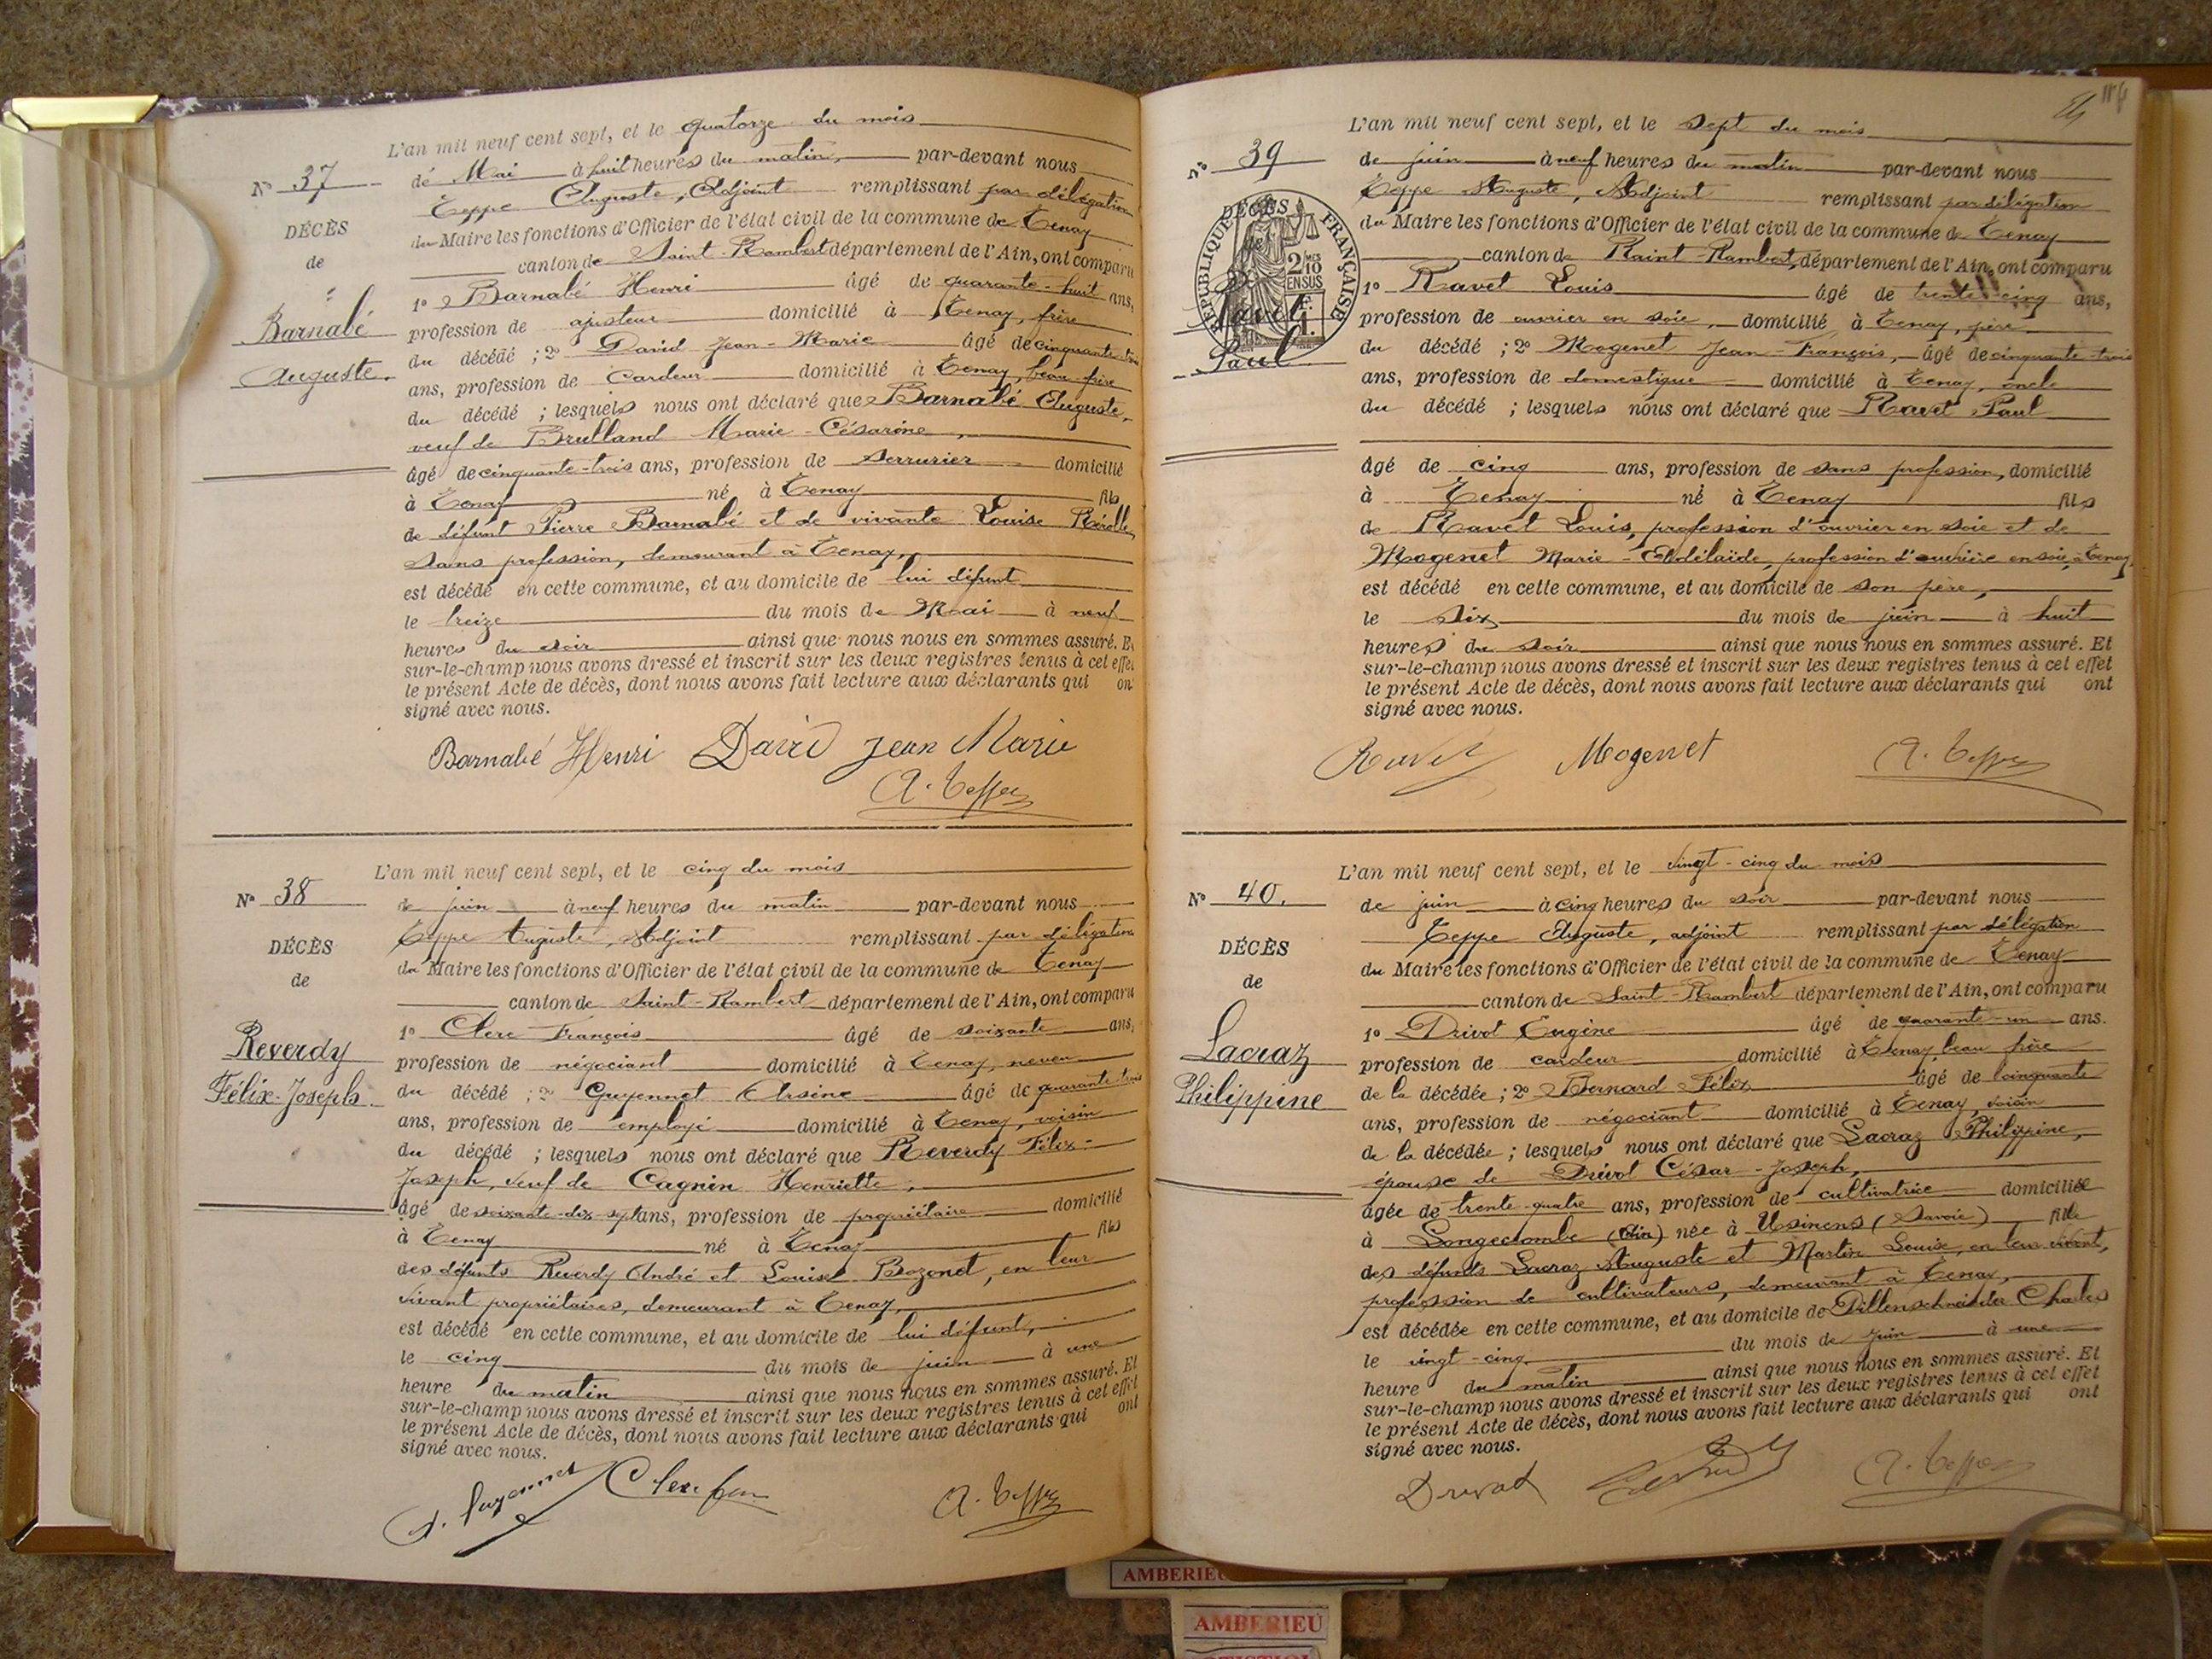 L'an mil neuf cent sept, et le quatorze du mois
N° 37
de Mai à huit heures du matin, par-devant nous
Teppe Auguste, Adjoint remplissant par délégation
DÉCÈS
du Maire les fonctions d'Officier de l'état civil de la commune de Tenay
de
canton de Saint-Rambert département de l'Ain, ont comparu
1° Barnabé Henri âgé de quarante-huit ans,
Barnabé
profession de ajusteur domicilié à Tenay, frère
du décédé ; 2° David Jean-Marie âgé de cinquante-trois
Auguste.
ans, profession de Cardeur domicilié à Tenay, beau-frère
du décédé ; lesquels nous ont déclaré que Barnabé Auguste,
veuf de Brulland Marie-Césarine,
âgé de cinquante-trois ans, profession de serrurier domicilié
à Tenay né à Tenay fils
de défunt Pierre Barnabé et de vivante Louise
sans profession, demeurant à Tenay,
est décédé en cette commune, et au domicile de lui défunt
le treize du mois de Mai à neuf
heures du soir ainsi que nous nous en sommes assuré. Et
sur-le-champ nous avons dressé et inscrit sur les deux registres tenus à cet effet
le présent Acte de décès, dont nous avons fait lecture aux déclarants qui ont
signé avec nous.
Barnabé Henri David Jean Marie
A. Teppe
L'an mil neuf cent sept, et le cinq du mois
N° 38
de juin à neuf heures du matin par-devant nous
Teppe Auguste, Adjoint remplissant par délégation
DÉCÈS
du Maire les fonctions d'Officier de l'état civil de la commune de Tenay
de
canton de Saint-Rambert département de l'Ain, ont comparu
1° Clerc François âgé de soixante ans,
Reverdy
profession de négociant domicilié à Tenay, neveu
Félix-Joseph
du décédé ; 2° Guyennet Arsène âgé de quarante-trois
ans, profession de employé domicilié à Tenay, voisin
du décédé ; lesquels nous ont déclaré que Reverdy Félix-
Joseph, veuf de Cagnin Henriette,
âgé de soixante-dix-sept ans, profession de propriétaire domicilié
à Tenay né à Tenay fils
des défunts Reverdy André et Louise Bozonet, en leur
vivant propriétaires, demeurant à Tenay,
est décédé en cette commune, et au domicile de lui défunt,
le cinq du mois de juin à une
heure du matin ainsi que nous nous en sommes assuré. Et
sur-le-champ nous avons dressé et inscrit sur les deux registres tenus à cet effet
le présent Acte de décès, dont nous avons fait lecture aux déclarants qui ont
signé avec nous.
A. Guyennet Clerc A. Teppe
L'an mil neuf cent sept, et le sept du mois
N° 39
de juin à neuf heures du matin par-devant nous
Teppe Auguste, Adjoint remplissant par délégation
DÉCÈS
RÉPUBLIQUE FRANÇAISE
2/10 EN SUS
du Maire les fonctions d'Officier de l'état civil de la commune de Tenay
de
canton de Saint-Rambert, département de l'Ain, ont comparu
1° Ravet Louis âgé de trente-cinq ans,
Ravet
profession de ouvrier en soie, domicilié à Tenay, père
du décédé ; 2° Mogenet Jean-François, âgé de cinquante-trois
Paul
ans, profession de domestique domicilié à Tenay, oncle
du décédé ; lesquels nous ont déclaré que Ravet Paul
âgé de cinq ans, profession de sans profession, domicilié
à Tenay né à Tenay fils
de Ravet Louis, profession d'ouvrier en soie et de
Mogenet Marie-Adélaïde, profession d'ouvrière en soie, à Tenay,
est décédé en cette commune, et au domicile de son père,
le six du mois de juin à huit
heures du soir ainsi que nous nous en sommes assuré. Et
sur-le-champ nous avons dressé et inscrit sur les deux registres tenus à cet effet
le présent Acte de décès, dont nous avons fait lecture aux déclarants qui ont
signé avec nous.
Ravet Mogenet A. Teppe
L'an mil neuf cent sept, et le vingt-cinq du mois
N° 40.
de juin à cinq heures du soir par-devant nous
Teppe Auguste, adjoint remplissant par délégation
DÉCÈS
du Maire les fonctions d'Officier de l'état civil de la commune de Tenay
de
canton de Saint-Rambert département de l'Ain, ont comparu
Lacraz
1° Drivot Eugène âgé de quarante-un ans.
profession de cardeur domicilié à Tenay, beau frère
Philippine
de la décédée ; 2° Bernard Félix âgé de cinquante
ans, profession de négociant domicilié à Tenay, voisin
de la décédée ; lesquels nous ont déclaré que Lacraz Philippine,
épouse de Drivot César-Joseph,
âgée de trente-quatre ans, profession de cultivatrice domiciliée
à Longecombe (Ain) née à Usinens (Savoie) fille
des défunts Lacraz Auguste et Martin Louise, en leur vivant,
profession de cultivateurs, demeurant à Tenay,
est décédée en cette commune, et au domicile de Dillenschneider Charles
le vingt-cinq du mois de juin à une
heure du matin ainsi que nous nous en sommes assuré. Et
sur-le-champ nous avons dressé et inscrit sur les deux registres tenus à cet effet
le présent Acte de décès, dont nous avons fait lecture aux déclarants qui ont
signé avec nous.
Drivot A. Teppe
AMBERIEU